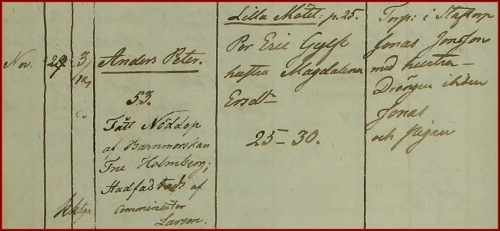 Nov. 29 3/12
Anders Peter.
53.
Fått Nöddop
af Barnmorskan
Fru Holmberg;
Stadfäst af
Comminister
Larson.
Lilla Mölt. p. 25.
Per Eric Gylf
hustru Magdalena
Ersdr
25–30.
Torp: i Stastorp
Jonas Jonsson
med hustru
Drängen ibidem
Jonas
och pigan